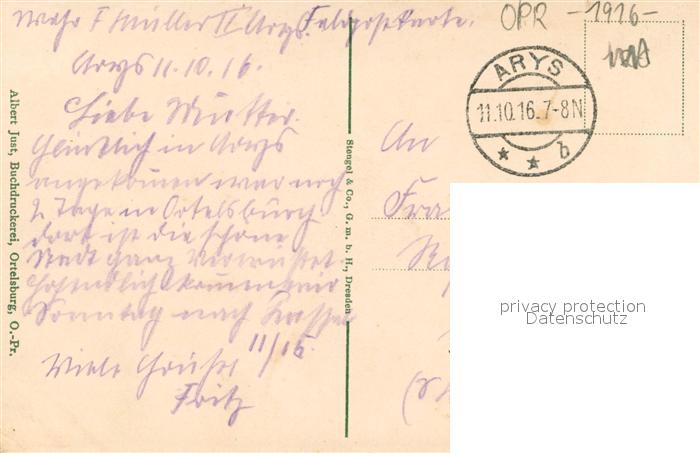 Wehr F Müller II Arys. Feldpostkarte.
OPR - 1916 -
Arys 11.10.16.
ARYS
11.10.16.7-8N
* * b
Liebe Mutter.
Glücklich in Arys
angekommen war noch
2 Tage in Ortelsburg
dort ist die schöne
Stadt ganz verwüstet
hoffendlich kommen wir
Sonntag nach Kassel
11/16.
Viele Grüße
Fritz
An
Fra
Albert Just, Buchdruckerei, Ortelsburg, O.-Pr.
Stengel & Co., G. m. b. H., Dresden
privacy protection
Datenschutz